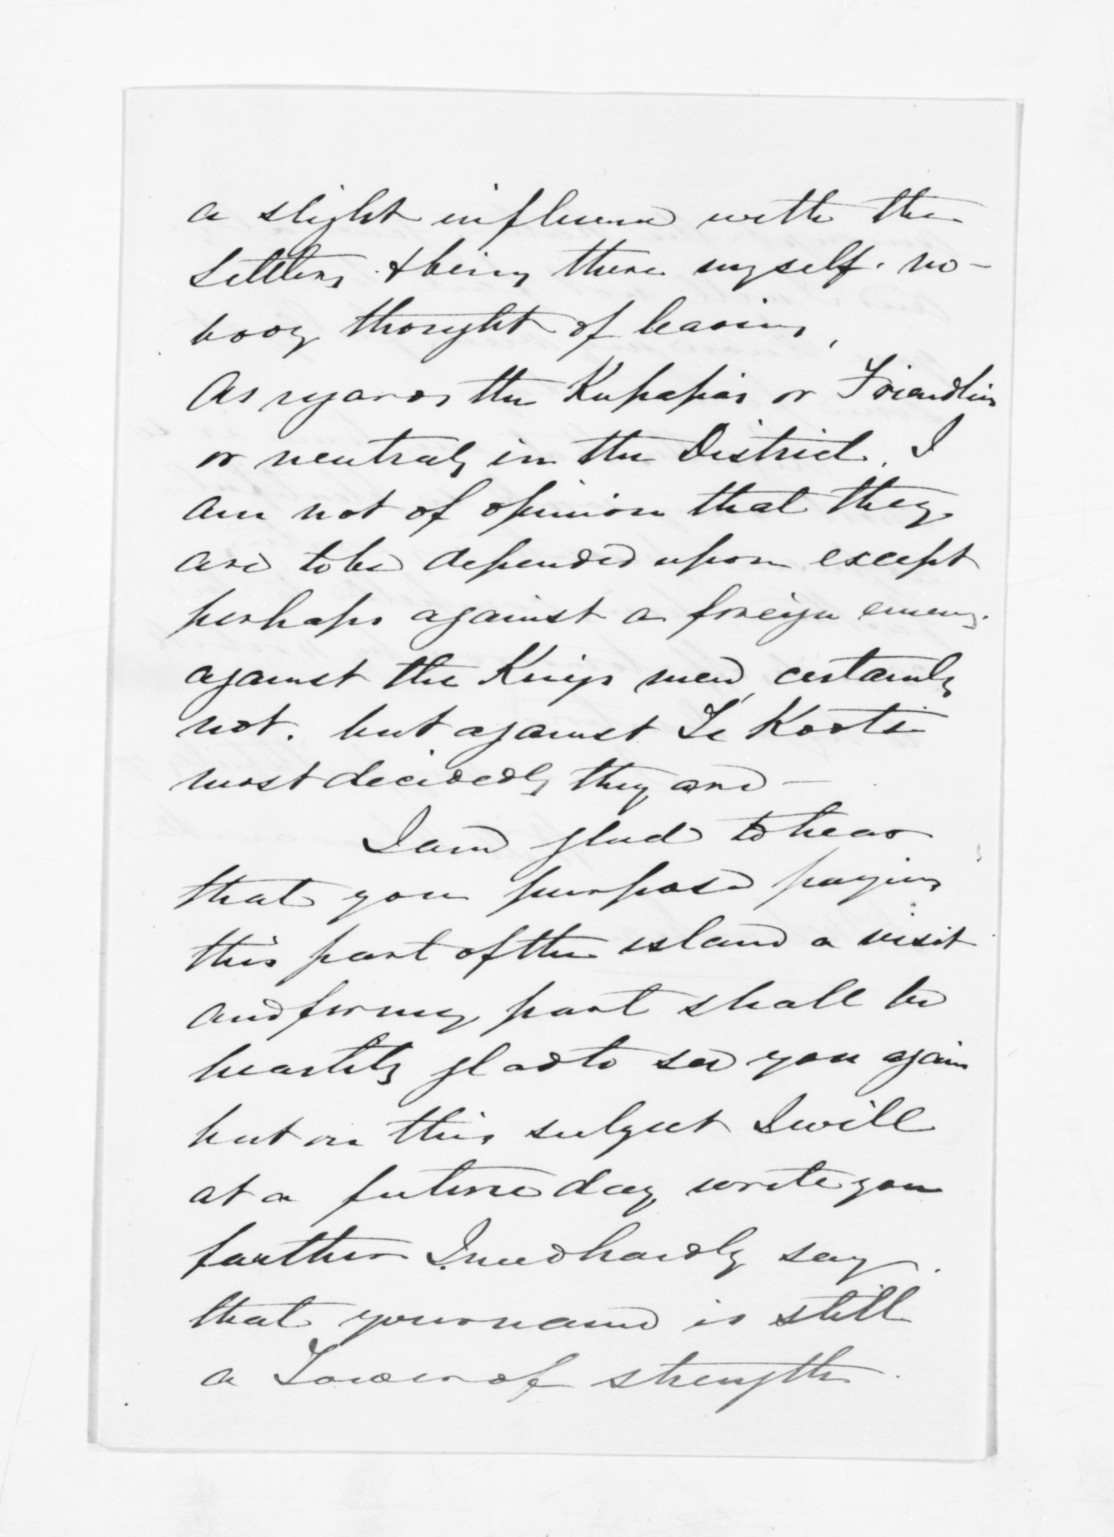 a slight influence with the
Settlers, & being there myself. no-
body thought of leaving,
As regards the Kupapas or Friendlies
or neutrals in the District, I
am not of opinion that they
are to be depended upon except
perhaps against a foreign enemy.
against the Kings men, certainly
not. but against Te Kooti
most decidedly they are —
I am glad to hear
that you purpose paying
this part of the island a visit
and for my part shall be
heartily glad to see you again
but on this subject I will
at a future day write you
farther I need hardly say
that your name is still
a Tower of strength.